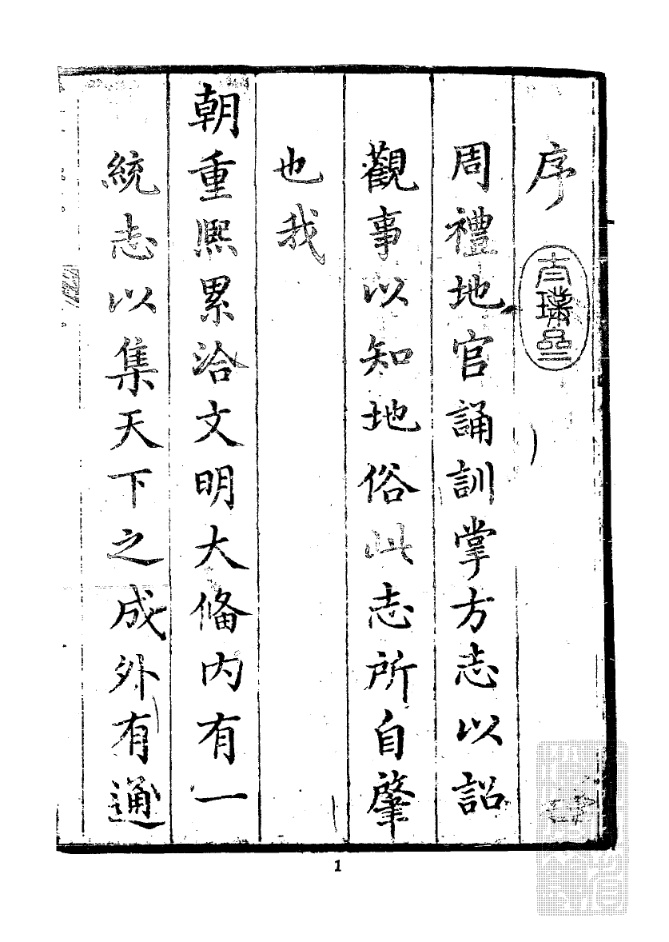 序
周禮地官誦訓掌方志以詔
觀事以知地俗此志所自肇
也我
朝重熙累洽文明大備内有一
統志以集天下之成外有通
1